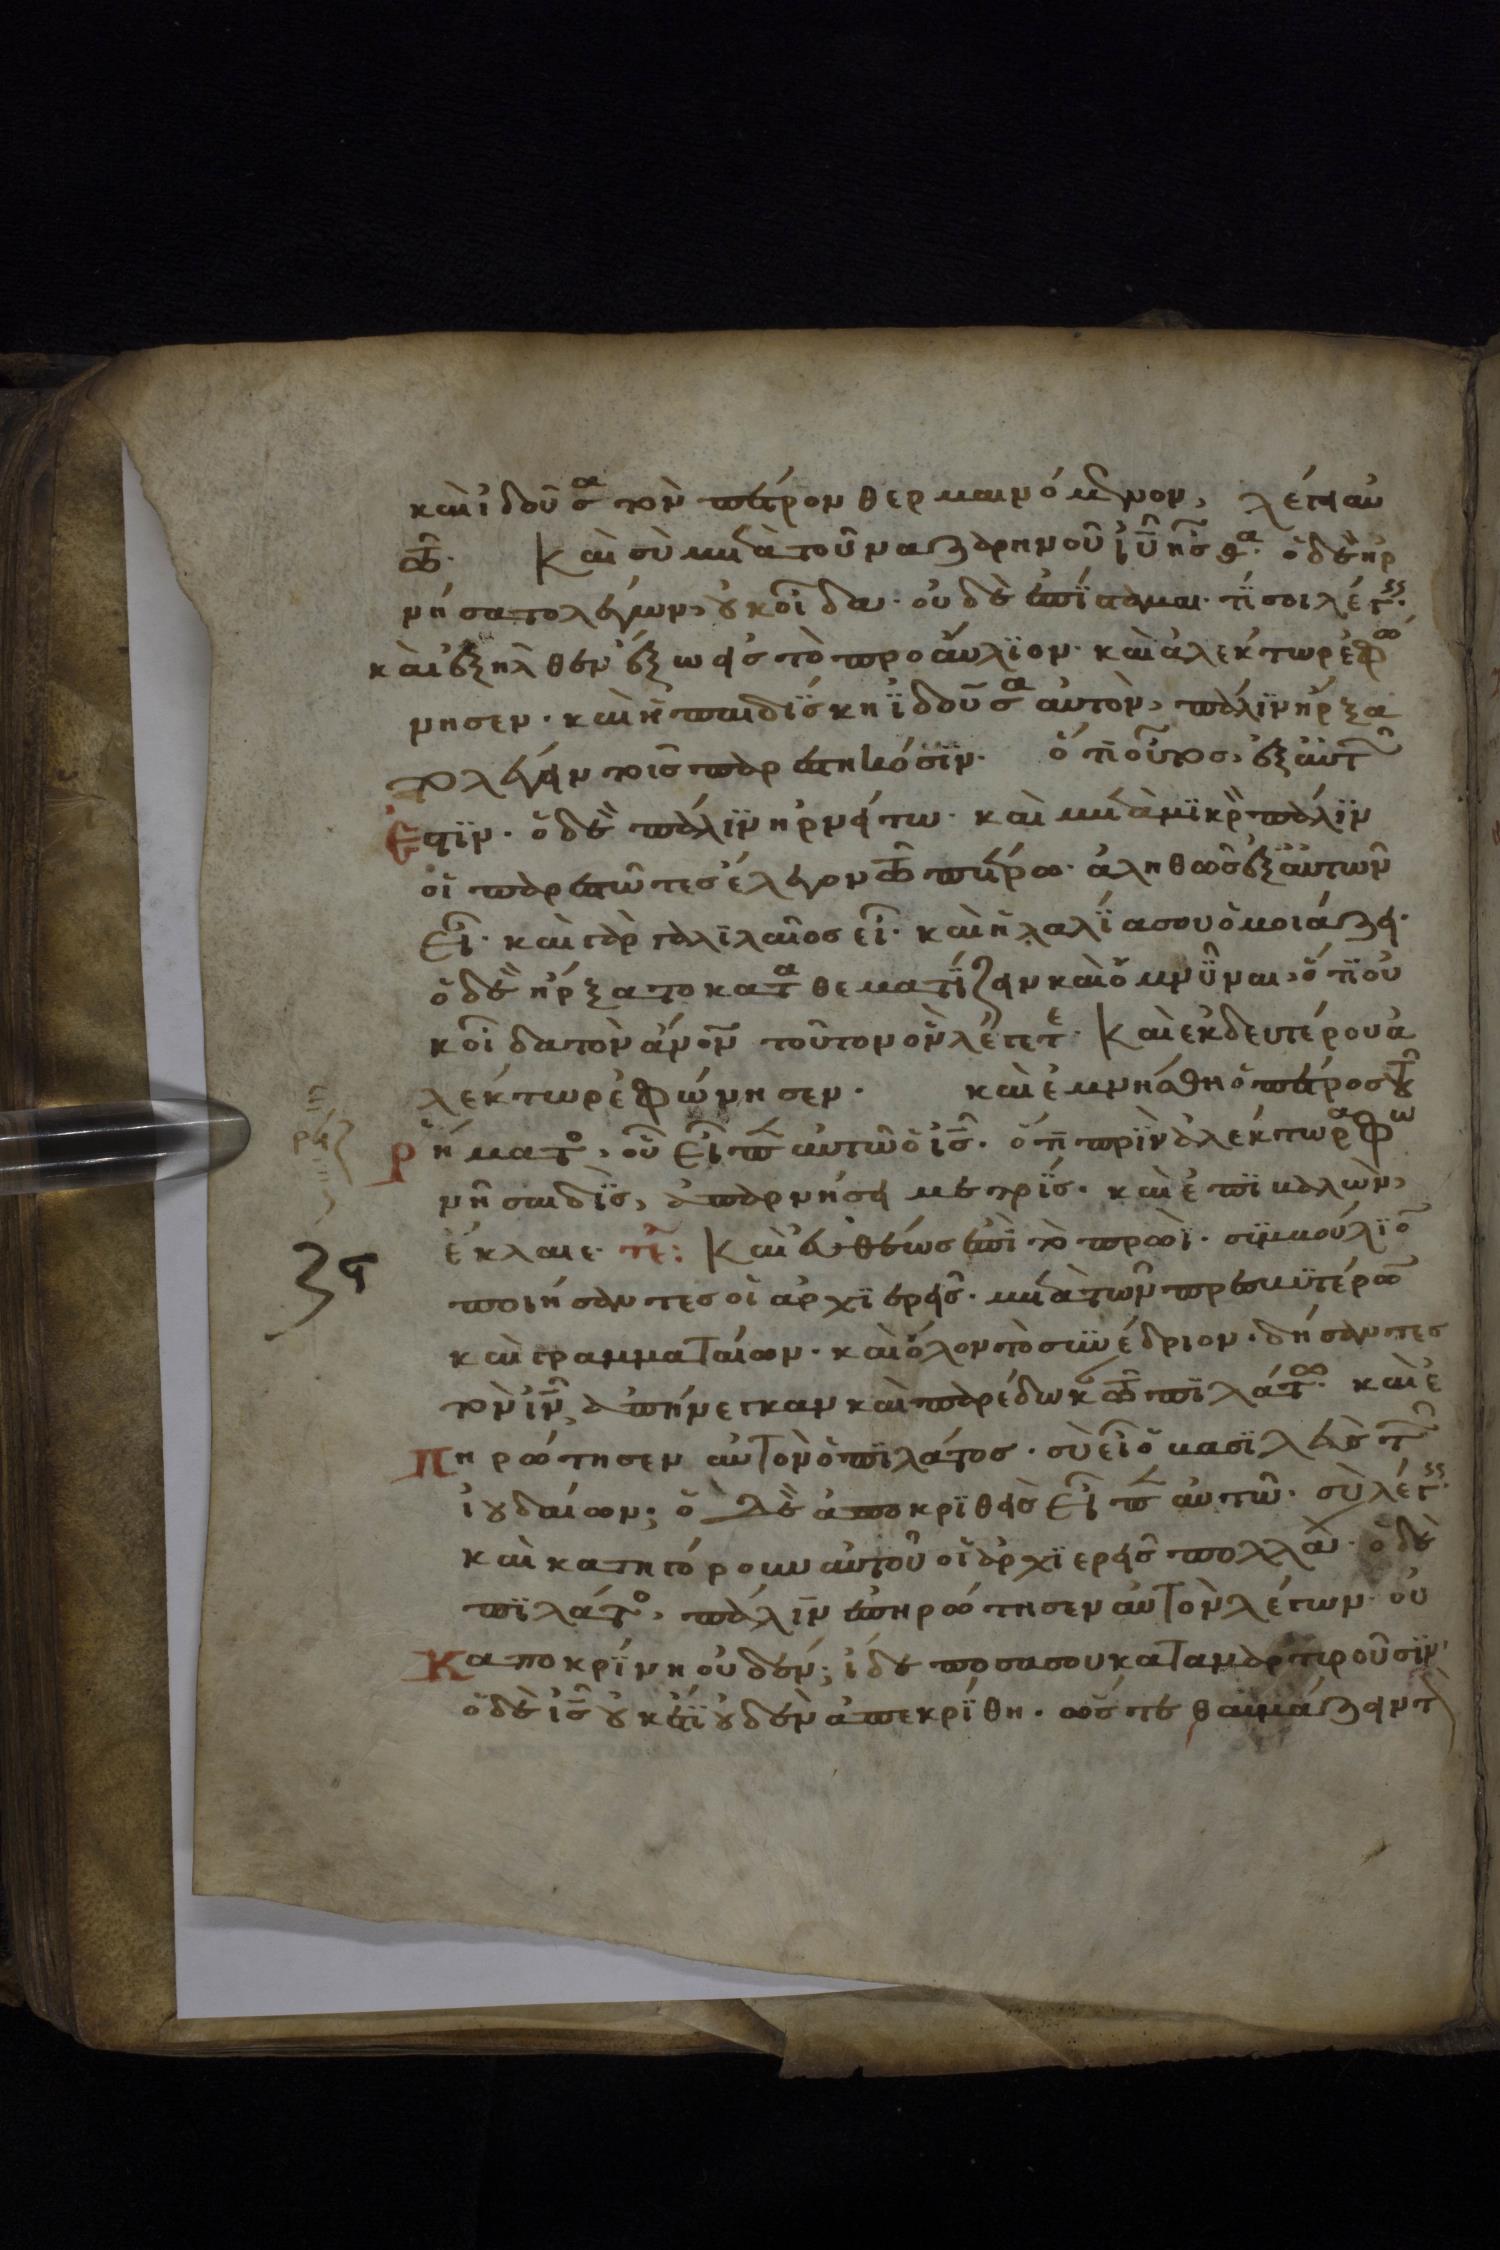 καὶ ἰδοῦσα τὸν πέτρον θερμαινόμενον, λέγει αὐ
τῶ· Καὶ σὺ μετὰ τοῦ ναζαρηνοῦ ιῦ ἦσθα· ὁ δὲ ἠρ
νήσατο λέγων, οὐκ οἶδα· οὐδὲ ἐπίσταμαι τί σοι λέγεις·
καὶ ἐξῆλθεν ἔξω εἰς τὸ προαύλϊον· καὶ ἀλέκτωρ ἐφώ
νησεν· καὶ ἡ παιδίσκη ἰδοῦσα αὐτὸν, πάλϊν ἤρξα
το λέγειν τοῖς παρεστηκόσϊν· ὅτι οὗτος, ἐξ αὐτῶν
ἐστϊν· ὁ δὲ πάλϊν ἠρνεῖτω· καὶ μετὰ μϊκρὸν πάλϊν
οἱ παρεστῶτες ἔλεγον τῶ πέτρω· ἀληθῶς ἐξ αὐτῶν
εἶ· καὶ γὰρ γαλϊλαῖος εἶ· καὶ ἡ λαλϊά σου ὁμοιάζει·
ὁ δὲ ἤρξατο καταθεματίζειν καὶ ὀμνῦναι, ὅτι οὐ
κ οἶδα τὸν ἄνον τοῦτον ὃν λέγετε· Καὶ ἐκ δευτέρου ἀ
λέκτωρ ἐφώνησεν· καὶ ἐμνήσθη ὁ πέτρος τοῦ
ῥήματος, οὗ εἶπεν αὐτῶ ὁ ις· ὅτι πρὶν ἀλέκτωρα φω
νῆσαι δὶς, ἀπαρνήσει με τρίς· καὶ ἐπιβαλὼν,
ἔκλαιε· τε: Καὶ εὐθέως ἐπὶ τὸ πρωῒ· σϊμβούλϊον
ποιήσαντες οἱ ἀρχϊερεῖς· μετὰ τῶν πρεσβϋτέρων
καὶ γραμματαίων· καὶ ὅλον τὸ συνέδριον· δήσαντες
τὸν ιν, ἀπήνεγκαν καὶ παρέδωκαν τῶ πϊλάτω· καὶ ἐ
πηρώτησεν αὐτὸν ὁ πϊλάτος· σὺ εἶ ὁ βασϊλεὺς τῶν
ἰουδαίων; ὁ δὲ ἀποκρϊθεὶς εἶπεν αὐτῶ· σὺ λέγεις·
καὶ κατηγόρουν αὐτοῦ οἱ ἀρχϊερεῖς πολλὰ· ὁ δὲ
πϊλάτος, πάλϊν ἐπηρώτησεν αὐτὸν λέγων· οὐ
κ αποκρίνη οὐδέν; ἴδε ποσα σου καταμαρτυροῦσϊν·
ὁ δὲ ις οὐκέτϊ οὐδὲν ἀπεκρίθη· ὥστε θαυμάζειν τὸν
ζς